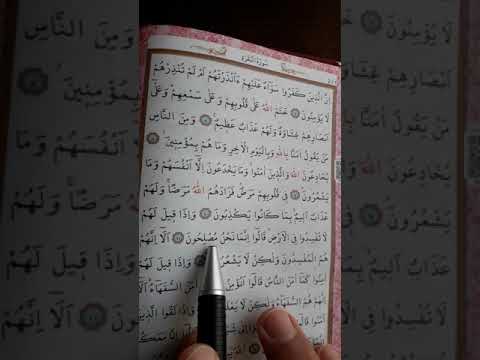 سُورَةُ الْبَقَرَةِ
اِنَّ الَّذِينَ كَفَرُوا سَوَاءٌ عَلَيْهِمْ ءَاَنْذَرْتَهُمْ اَمْ لَمْ تُنْذِرْهُمْ
لَا يُؤْمِنُونَ ﴿٦﴾ خَتَمَ اللهُ عَلٰى قُلُوبِهِمْ وَعَلٰى سَمْعِهِمْ وَعَلٰى
اَبْصَارِهِمْ غِشَاوَةٌ وَلَهُمْ عَذَابٌ عَظِيمٌ ﴿٧﴾ وَمِنَ النَّاسِ
مَنْ يَقُولُ اٰمَنَّا بِاللهِ وَبِالْيَوْمِ الْاٰخِرِ وَمَا هُمْ بِمُؤْمِنِينَ ﴿٨﴾
يُخَادِعُونَ اللهَ وَالَّذِينَ اٰمَنُوا وَمَا يَخْدَعُونَ اِلَّا اَنْفُسَهُمْ وَمَا
يَشْعُرُونَ ﴿٩﴾ فِي قُلُوبِهِمْ مَرَضٌ فَزَادَهُمُ اللهُ مَرَضًا وَلَهُمْ
عَذَابٌ اَلِيمٌ بِمَا كَانُوا يَكْذِبُونَ ﴿١٠﴾ وَاِذَا قِيلَ لَهُمْ
لَا تُفْسِدُوا فِي الْاَرْضِ قَالُوا اِنَّمَا نَحْنُ مُصْلِحُونَ ﴿١١﴾ اَلَا اِنَّهُمْ
هُمُ الْمُفْسِدُونَ وَلٰكِنْ لَا يَشْعُرُونَ وَاِذَا قِيلَ لَهُمْ
اٰمِنُوا كَمَا اٰمَنَ النَّاسُ قَالُوا اَنُؤْمِنُ اٰمَنَ السُّفَهَاءُ اَلَا
اِنَّهُمْ هُمُ السُّفَهَاءُ وَلٰكِنْ لَا وَاِذَا لَقُوا الَّذِينَ
اٰمَنُوا قَالُوا